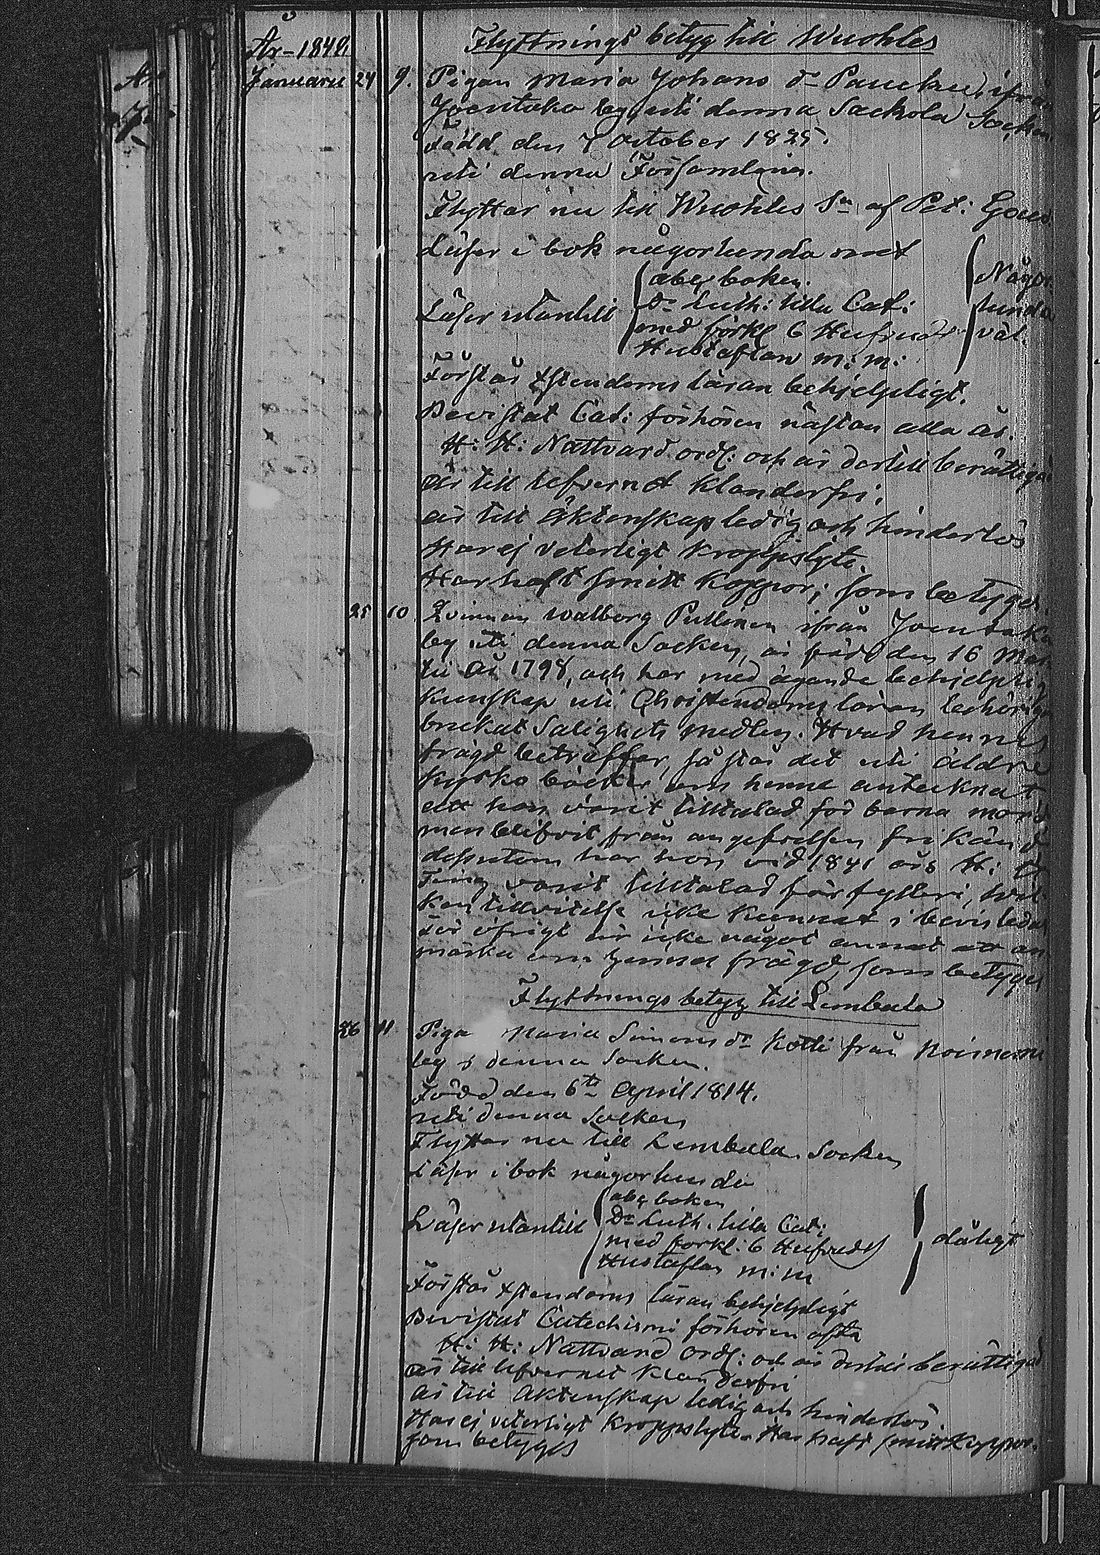 År 1848.
Flyttnings betyg till Wuohles
Januarii 24 9. Pigan Maria Johans dr ifrån
by uti denna Sackola Socken
Född den 7 October 1825.
uti denna Församling.
Flyttar nu till Wuohles Sn af Pet: Gouv
Läser i bok någorlunda samt
Läser utantill abc boken.
Dr Luth: lilla Cat:
med förkl 6 Hufvud
Hustaflan m: m:
Någor
lunda
väl.
Förstår Xstendoms läran behjelpligt.
Bevistat Cat: förhören nästan alla år.
H: H: Nattvard ordl: och är dertill berättigad
är till lefvernet klanderfri;
är till Äktenskap ledig och hinderlös
Har ej veterligt kroppslyte.
Har haft smitt Koppor; som betyges.
25 10 Qvinnan Walborg Pullinen ifrån
by uti denna Socken, är född den 16 Mar
tii År 1798, och har med ägande behjelplig
Kunskap uti Christendoms läran behörigen
brukat Salighets medlen. Hvad hennes
frägd beträffar, så står det uti äldre
Kyrko böcker om henne antecknat
att hon varit tilltalad för barna mord
men blifvit från angifvelsen frikänd
dessutom har hon vid 1841 års H: T
Ting varit tilltalad för fylleri, hvil
ken tillvitelse icke kunnat i bevis ledas
för öfrigt är icke något annat att an
märka om hennes frägd, som betyges
Flyttnings betyg till Lembala
26 11 Piga Maria Simons dr Kotti från
by i denna Socken.
Född den 6te April 1814.
uti denna Socken
Flyttar nu till Lembala Socken
Läser i bok någorlunda
Läser utantill abc boken
Dr Luth. lilla Cat:
med förkl: 6 Hufvuds
Hustaflan m: m
dåligt
Förstår Xstendoms läran behjelpligt
Bevistat Catechismi förhören ofta
H: H: Nattvard ordl: och är dertill berättigad
är till lefvernet klanderfri
är till Äktenskap ledig och hinderlös.
Har ej veterligt Kroppslyte. Har haft smitt Koppor.
som betyges